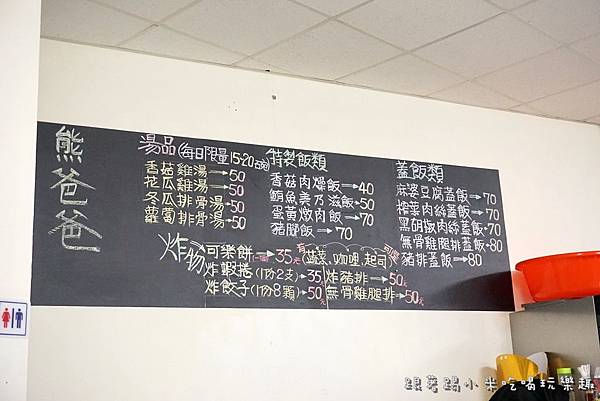 熊爸爸
湯品(每日限量15-20碗)
香菇雞湯→50
花瓜雞湯→50
冬瓜排骨湯→50
蘿蔔排骨湯→50
特製飯類
香菇肉燥飯→40
鮪魚美乃滋飯→50
蛋黃燉肉飯→70
豬腳飯→70
蓋飯類
麻婆豆腐蓋飯→70
榨菜肉絲蓋飯→70
黑胡椒肉絲蓋飯→70
無骨雞腿排蓋飯→80
豬排蓋飯→80
炸物
可樂餅→35元
有 蔬菜.咖哩.起司
炸蝦捲(1份2支)→35
炸餃子(1份8顆)→50元
炸豬排→50元
無骨雞腿排→50元
跟著踢小米吃喝玩樂趣